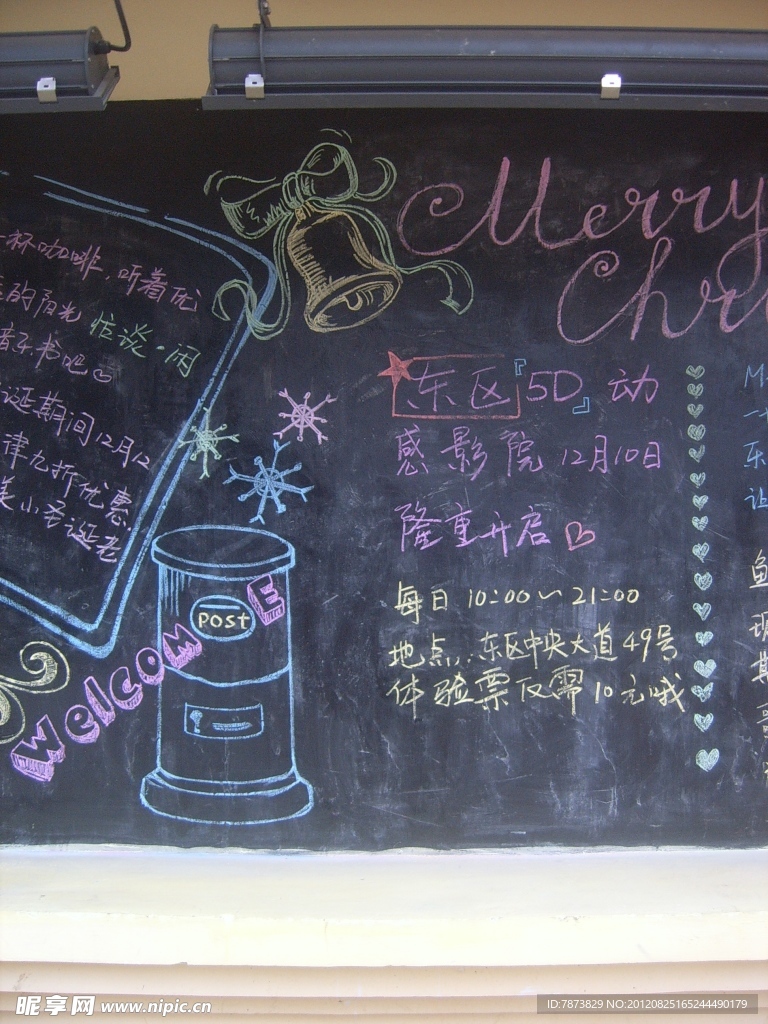 一杯咖啡,听着优
的阳光 恰谈·闲
书吧
诞期间12月12
律九折优惠
美小圣诞老
WelcomE
post
Merry
Chri
东区『5D』动
感影院 12月10日
隆重开启
每日 10:00~21:00
地点:东区中央大道49号
体验票仅需10元哦
M
一
东
让
昵享网 www.nipic.cn
ID:7873829 NO:20120825165244490179